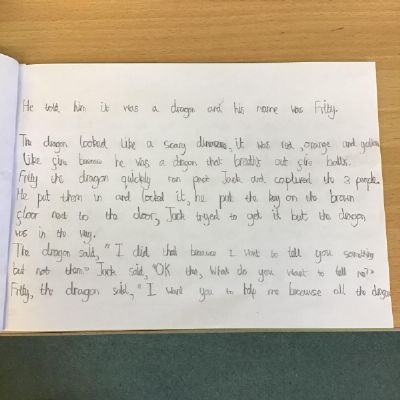 He told him it was a dragon and his name was Fritty.
The dragon looked like a scary dinosaur, it was red, orange and yellow
like fire because he was a dragon that breaths out fire balls.
Fritty the dragon quickly ran past Jack and captured the 3 people.
He put them in and locked it, he put the key on the brown
floor next to the door, Jack tryed to get it but the dragon
was in the way.
The dragon said, "I did that because I want to tell you something
but not them." Jack said, "OK then, what do you want to tell me?"
Fritty, the dragon said, "I want you to help me because all the dragon